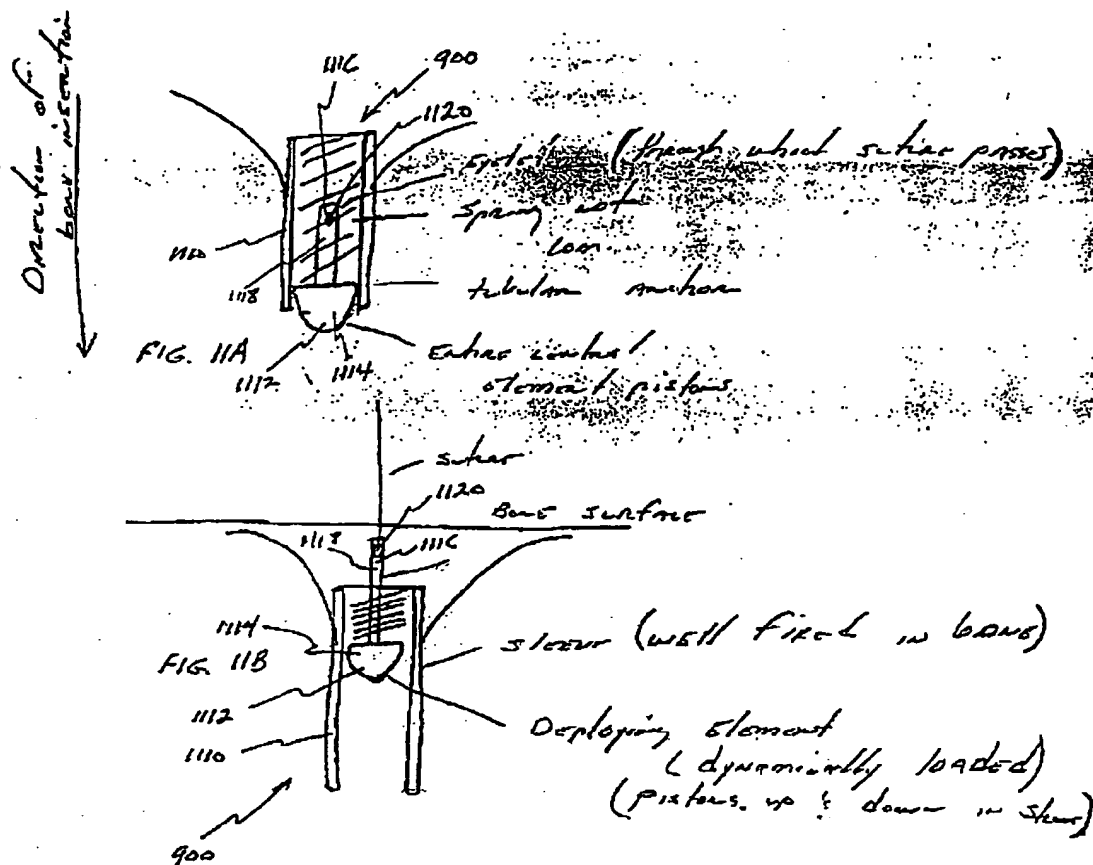 Direction of
bone insertion
1116
900
1120
Eyelet (through which suture passes)
Spring not
1110
tubular anchor
1118
FIG. 11A
1112
1114
Entire central
element pistons
suture
1120
Bone surface
1118
1116
1114
FIG. 11B
sleeve (well fixed in bone)
1112
Deploying Element
1110
(dynamically loaded)
(pistons up & down in sleeve)
900